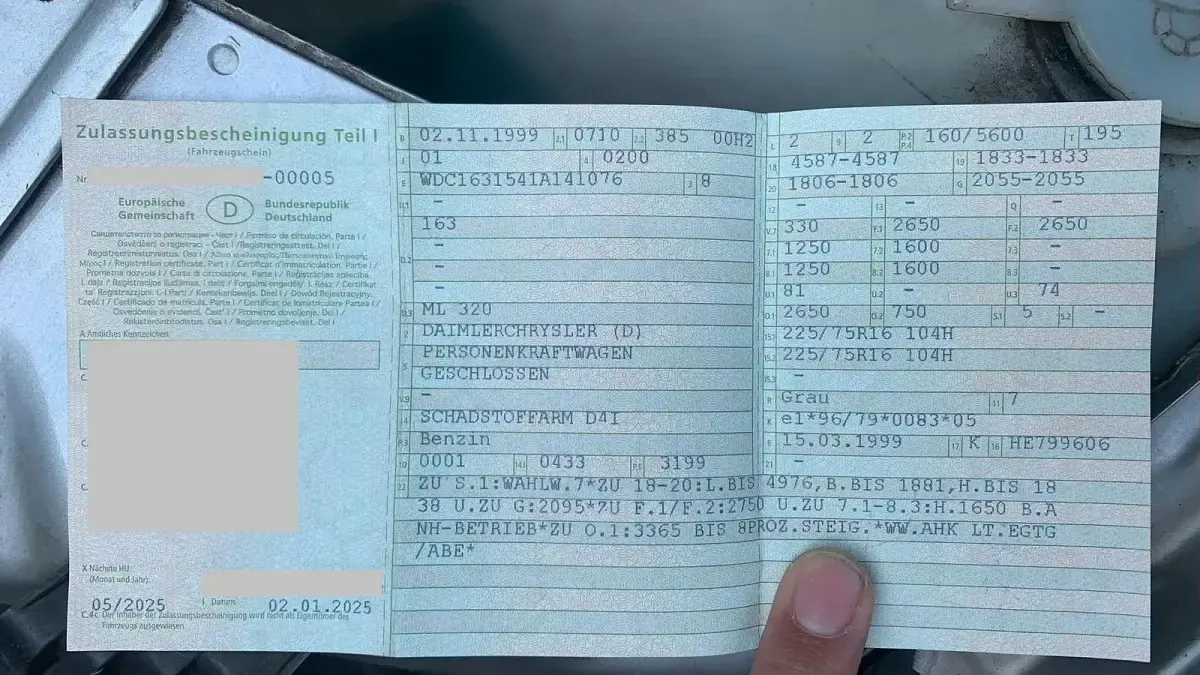 Zulassungsbescheinigung Teil I
(Fahrzeugschein)
Nr. -00005
Europäische Gemeinschaft D Bundesrepublik Deutschland
A Amtliches Kennzeichen
C.
C.
C.
X Nächste HU
(Monat und Jahr).
05/2025 I Datum: 02.01.2025
C.4c Der Inhaber der Zulassungsbescheinigung wird nicht als Eigentümer des
Fahrzeugs ausgewiesen
B 02.11.1999 2.1 0710 2.2 385 00H2
J 01 4 0200
E WDC1631541A141076 3 8
D.1 -
163
D.2 -
-
-
D.3 ML 320
2 DAIMLERCHRYSLER (D)
5 PERSONENKRAFTWAGEN
GESCHLOSSEN
V.9 -
14 SCHADSTOFFARM D4I
P.3 Benzin
10 0001 14.1 0433 P.1 3199
L 2 9 2 P.2 P.4 160/5600 T 195
18 4587-4587 19 1833-1833
20 1806-1806 G 2055-2055
12 - 13 - Q -
V.7 330 F.1 2650 F.2 2650
7.1 1250 7.2 1600 7.3 -
8.1 1250 8.2 1600 8.3 -
U.1 81 U.2 - U.3 74
O.1 2650 O.2 750 S.1 5 S.2 -
15.1 225/75R16 104H
15.2 225/75R16 104H
15.3 -
R Grau 11 7
K e1*96/79*0083*05
6 15.03.1999 17 K 16 HE799606
21 -
22 ZU S.1:WAHLW.7*ZU 18-20:L.BIS 4976,B.BIS 1881,H.BIS 18
38 U.ZU G:2095*ZU F.1/F.2:2750 U.ZU 7.1-8.3:H.1650 B.A
NH-BETRIEB*ZU O.1:3365 BIS 8PROZ.STEIG.*WW.AHK LT.EGTG
/ABE*